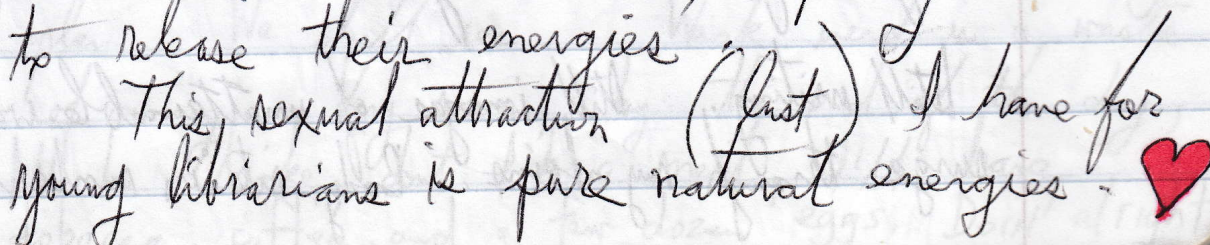 to release their energies.
This, sexual attraction (lust) I have for
young librarians is pure natural energies.